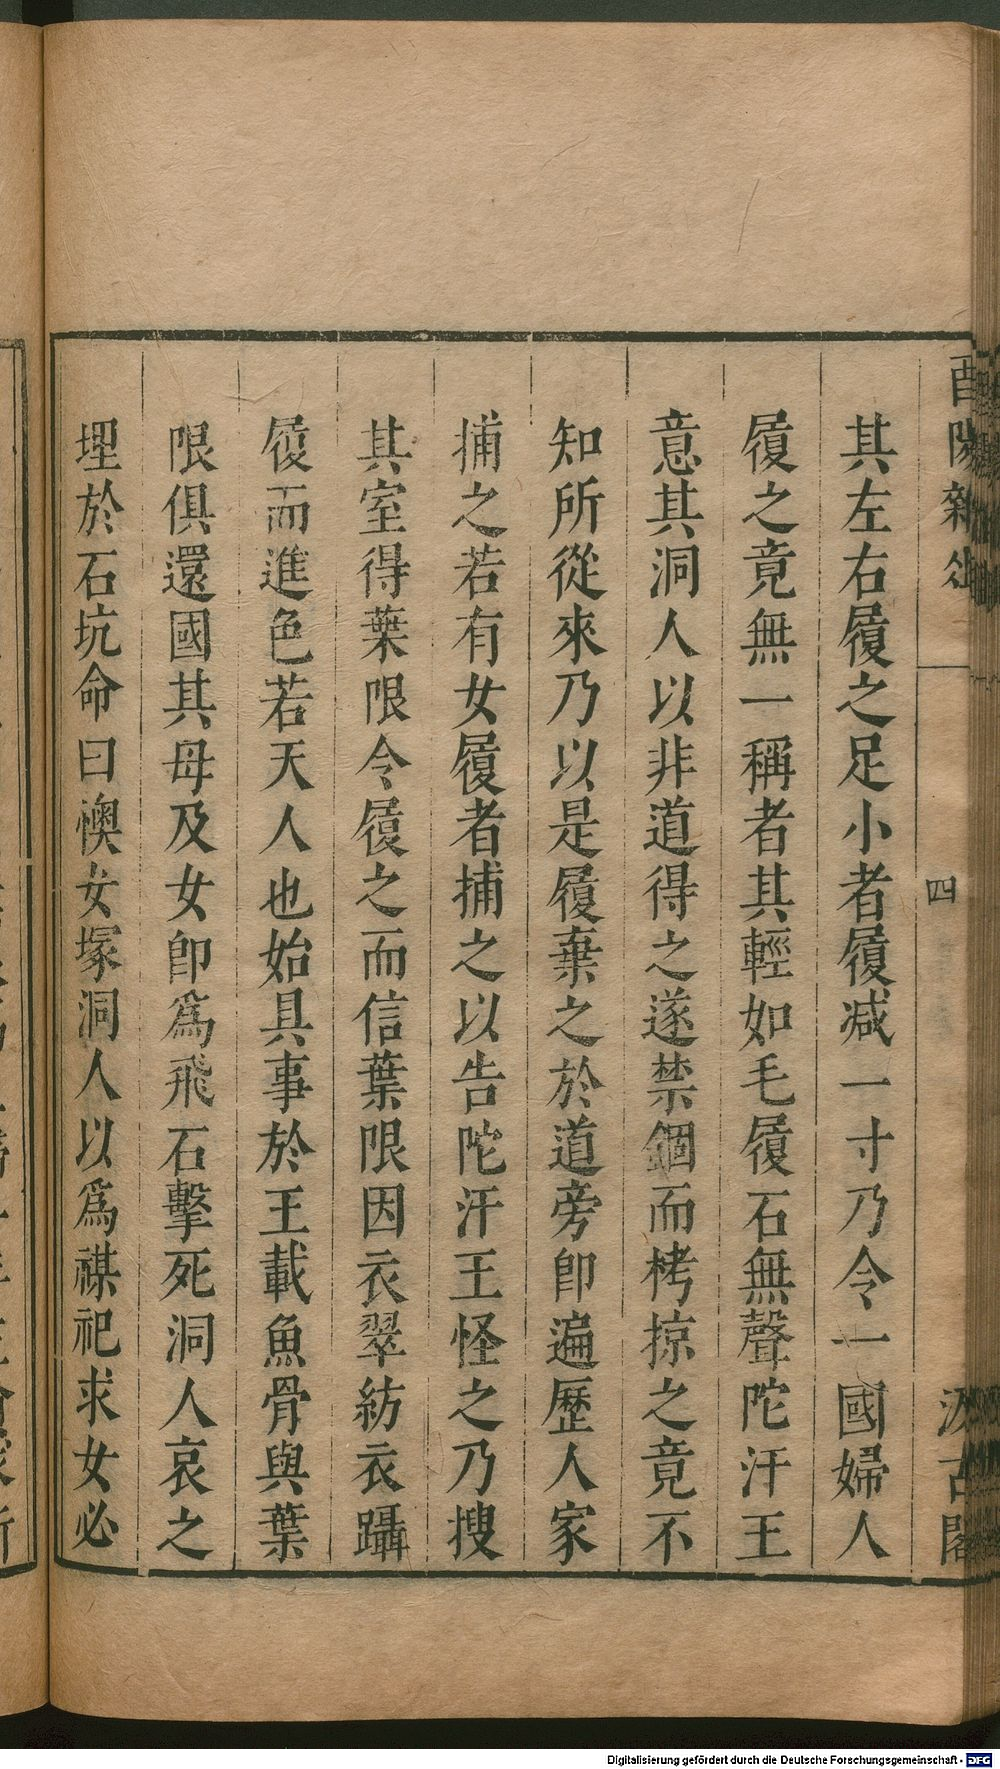 酉陽雜俎
四
汲古閣
其左右履之足小者履减一寸乃令一國婦人
履之竟無一稱者其輕如毛履石無聲陀汗王
意其洞人以非道得之遂禁錮而栲掠之竟不
知所從來乃以是履棄之於道旁卽遍歷人家
捕之若有女履者捕之以告陀汗王怪之乃搜
其室得葉限令履之而信葉限因衣翠紡衣躡
履而進色若天人也始具事於王載魚骨與葉
限俱還國其母及女卽爲飛石擊死洞人哀之
埋於石坑命曰懊女塚洞人以爲禖祀求女必
Digitalisierung gefördert durch die Deutsche Forschungsgemeinschaft - DFG